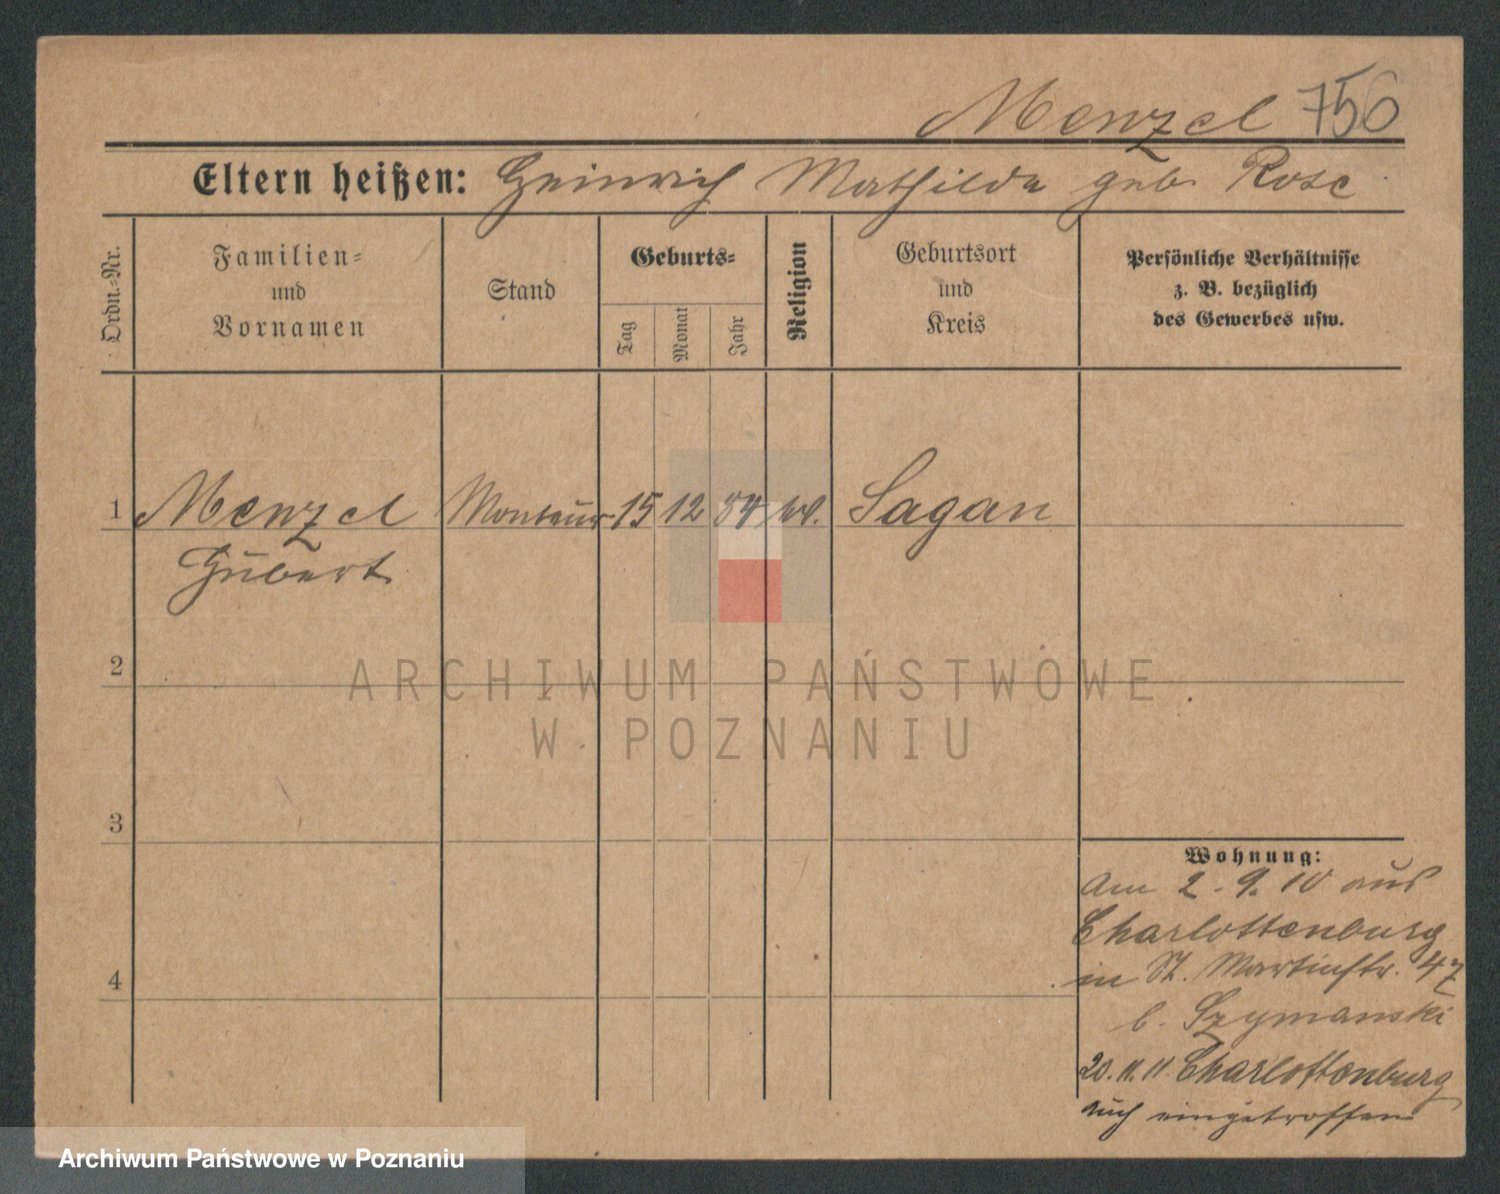 Menzel 756
Eltern heißen: Heinrich Mathilde geb. Rose
Ordn.-Nr.
Familien-
und
Vornamen
Stand
Geburts-
Tag
Monat
Jahr
Religion
Geburtsort
und
Kreis
Persönliche Verhältnisse
z. B. bezüglich
des Gewerbes usw.
1 Menzel Monteur 15 12 84 ev. Sagan
Hubert
2
ARCHIWUM PAŃSTWOWE
W POZNANIU
3
Wohnung:
Am 2.9.10 aus
Charlottenburg
4
in St. Martinstr. 47
b. Szymanski
20.11.11 Charlottenburg
eingetroffen
Archiwum Państwowe w Poznaniu